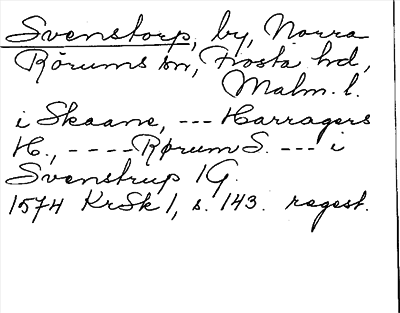 Svenstorp, by, Norra
Rörums sn, Frosta hd,
Malm. l.
i Skaane, --- Harragers
H., ---- Rørum S. --- i
Svenstrup 1G.
1574 KrSk 1, s. 143. regest.